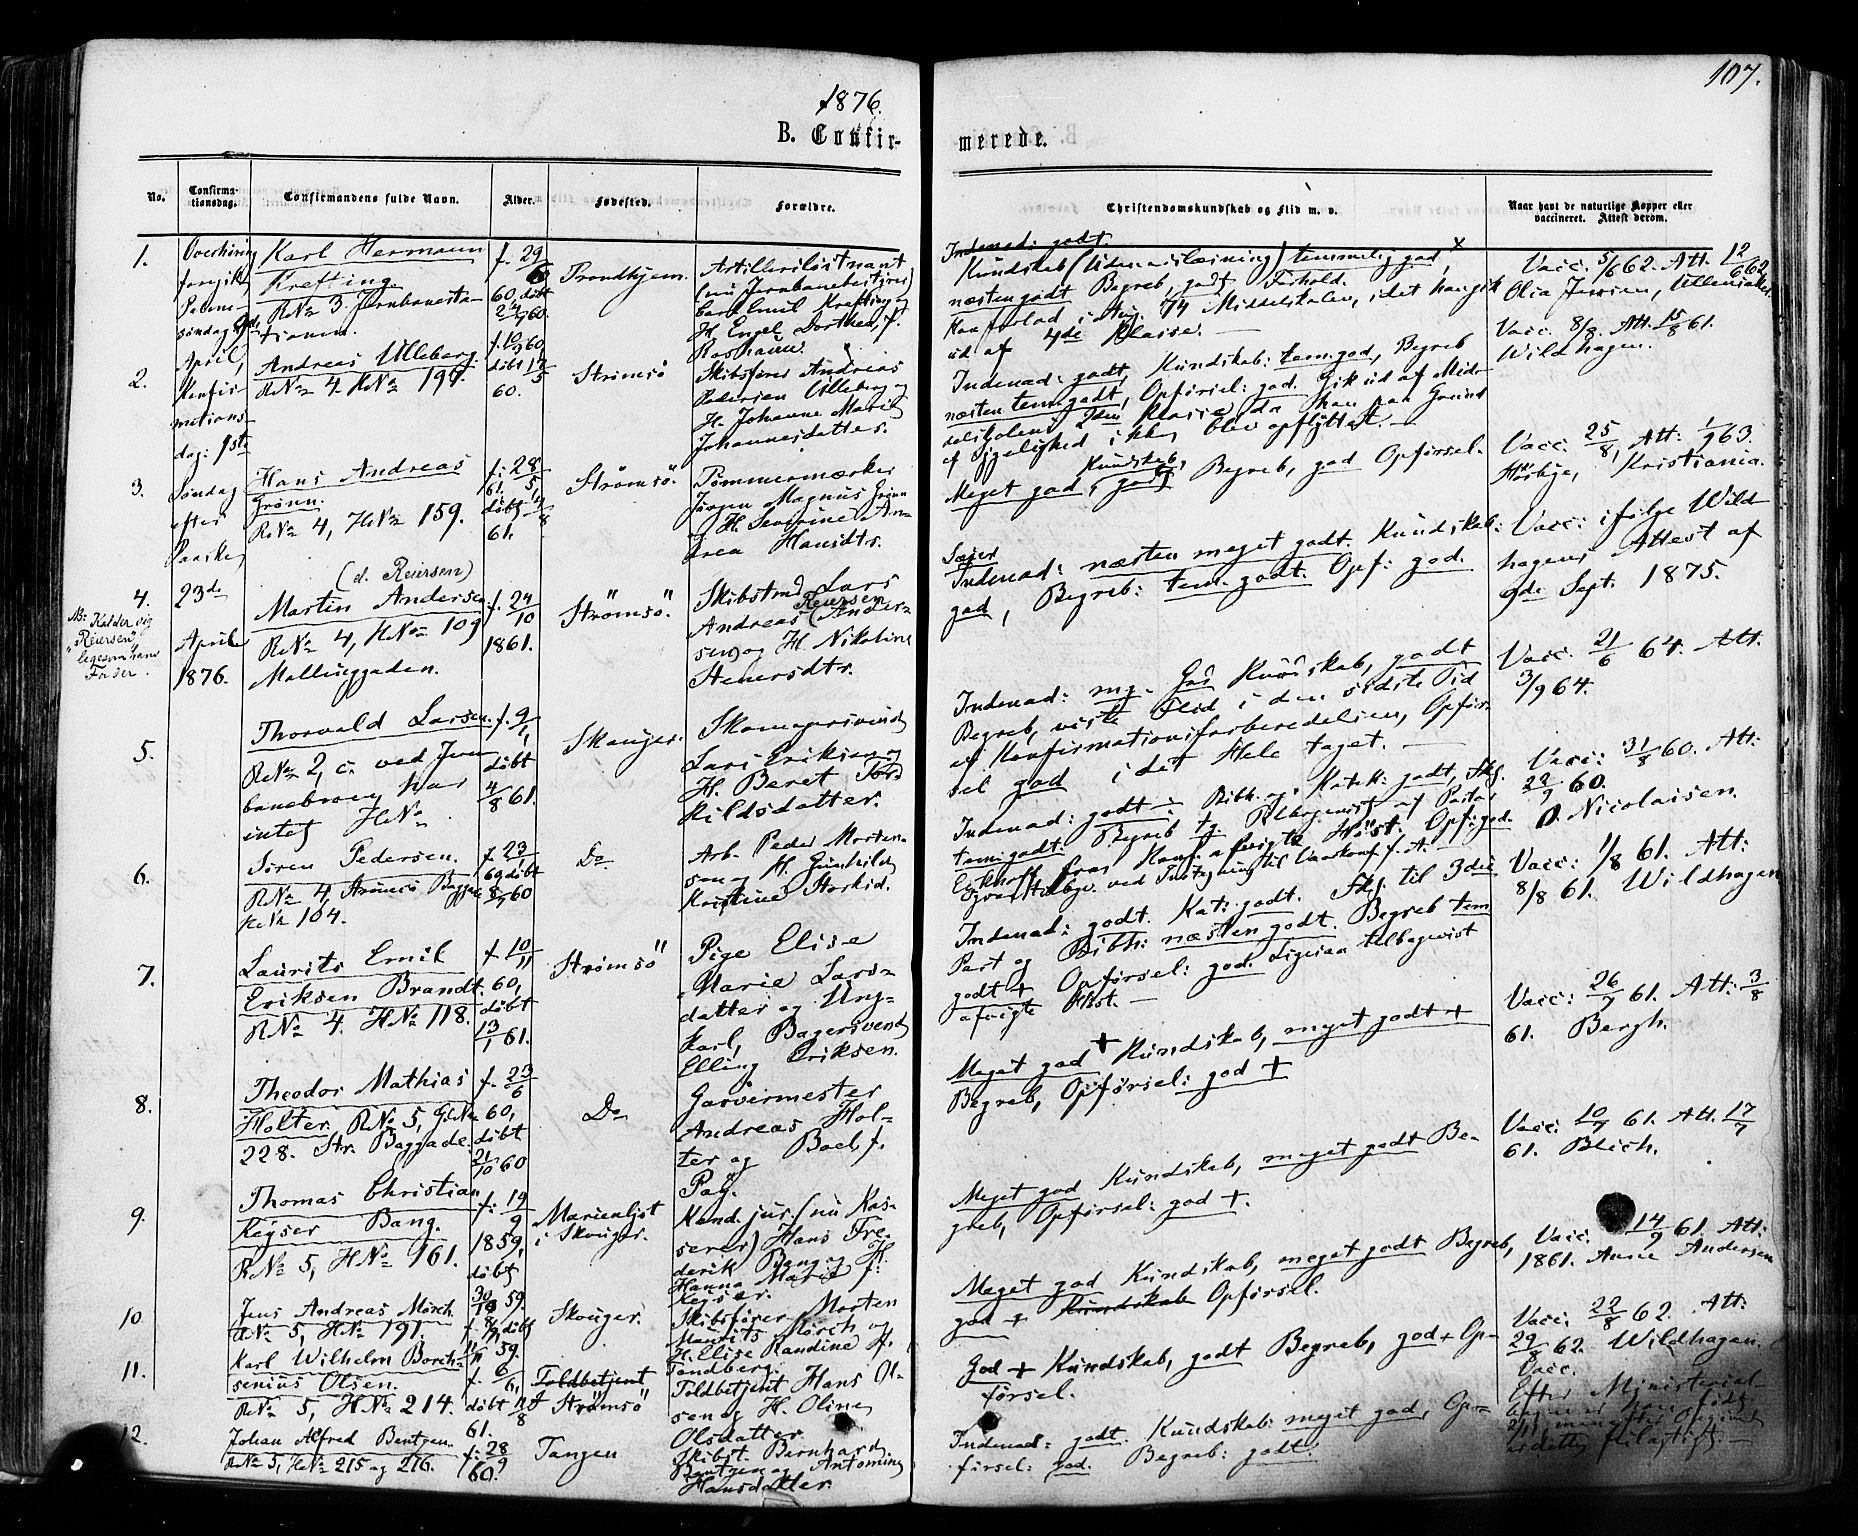 1876.
107.
B. Confir-
merede.
No.
Confirma-
tionsdag.
Confirmandens fulde Navn.
Alder.
Fødested.
Forældre.
Christendomskundskab og Flid m. v.
Naar havt de naturlige Kopper eller
vaccineret. Attest derom.
Overhöring
foregik
Palme-
söndag 9de
April,
Konfir-
mations-
dag: 1ste
Söndag
efter
Paaske,
23de
April
1876.
1.
Karl Hermann
Krefting
R№ 3. Jernbanesta-
tionen.
f. 29/6
60, döbt
Trondhjem.
Artilleriløitnant
(nu Jernbanebestyrer)
Carl Emil Krefting og
H. Engel Dorthea, f.
Indenad: godt.
Kundskab (Udenadslæsning) temmelig god,
næsten godt Begreb, godt Forhold.
Han forlod i Aug. 74 Middelskolen, idet han gik
ud af 4de Klasse. —
Vacc. 5/6 62. Att. 12/6 62
Olia Jensen, Ullensaker.
2.
Andreas Ulleberg
R№ 4 H№ 197.
döbt 17/5
60.
Strömsö
Skibsfører Andreas
Pedersen Ulleberg og
H. Johanne Marie
Johannesdatter.
Indenad: godt, Kundskab: tem. god, Begreb
næsten tem. godt, Opførsel: god. Gik ud af Mid-
delskolens 2den Klasse, da han paa Grund
af Sygelighed ikke blev opflyttet. —
Vacc. 8/8. Att. 15/8 61.
Wildhagen.
3.
Hans Andreas
Grönn.
R№ 4, H№ 159.
f. 28/5
61,
döbt
61.
Strømsö.
Tømmermærker
Jörgen Magnus Grönn
H. Severine An-
drea Hansdtr.
Meget god Kundskab, godt Begreb, god Opførsel.
Vacc. 25/8, Att: 1/9 63.
Kristiania.
4.
NB: Kalder sig
"Reiersen",
ligesom hans
Fader.
(d. Reiersen)
Martin Andersen
R№ 4, H№ 109
Möllinggaden.
f. 24/10
1861.
Strömsö.
Skibstmd. Lars
Reiersen
Andreas (Ander-
sen) og H. Nikoline
Stenersdtr.
Indenad: næsten meget godt. Kundskab:
god, Begreb: tem. godt. Opf: god.
Vacc: ifølge Wild-
hagens Attest af
9de Sept. 1875.
5.
Thorvald Larsen.
R№ 2, c. ved Jern-
banebroen, har
intet H№
f. 9/1
döbt
4/8 61.
Skouger.
Skomagersvend
Lars Eriksen og
H. Beret Tors-
kildsdatter.
Indenad: mg. God Kundskab, godt
Begreb, viste Flid i den sidste Tid
af Konfirmationsforberedelsen, Opfør-
sel god i det Hele taget. —
Vacc. 21/6 64. Att.
3/9 64.
6.
Sören Pedersen.
R№ 4, Strömsö Baggade
H№ 104.
f. 23/1
60 döbt
8/7 60
Do
Arb. Peder Morten-
sen og H. Gunhild
Kristine Torkild.
Indenad: godt. Bibh. og Katek: godt,
tem. godt. Begreb
Vacc: 31/8 60. Att:
22/9 60.
O. Nicolaisen.
7.
Laurits Emil
Eriksen Brandt.
R№ 4. H№ 118.
f. 10/11
60,
döbt
13/1 61.
Strømsö
Pige Elise
Marie Lars-
datter og Ung-
karl, Bagersvend
Elling Eriksen.
Indenad: godt. Kat: godt. Fkl. til 3die
Part og Bibh: næsten godt. Begreb tem
godt + Opførsel: god. Ligesaa tilbagevist
afvigte Høst. —
Vacc: 1/8 61. Att:
8/8 61. Wildhagen
8.
Theodor Mathias
Holter, R№ 5, H№
228. Str. Baggade.
f. 23/6
60,
döbt
21/10 60
Do
Garvermester
Andreas Hol-
ter og Boel, f.
Paÿ.
Meget god + Kundskab, meget godt +
Begreb, Opførsel: god +
Vacc: 26/7 61. Att: 3/8
61. Bergh.
9.
Thomas Christian
Keyser Bang.
R№ 5, H№ 161.
f. 19/9
1859,
döbt
30/10 59.
Marienlyst
i Skouger.
Kand. jur. (nu Kas-
serer) Hans Fre-
derik Bang og H.
Hanna Marie f.
Keyser.
Meget god Kundskab, meget godt Be-
greb, Opførsel: god +.
Vacc: 10/7 61. Att. 17/7
61. Blich.
10
Jens Andreas Mörch
R№ 5, H№ 191.
59.
Skouger.
Skibsfører Morten
Maurits Mörch og
H. Elise Randine f.
Tandberg.
Meget god Kundskab, meget godt Begreb,
god + Kundskab Opførsel.
Vacc. 14/9 61. Att:
1861. Anne Andersen
11.
Karl Wilhelm Borch-
senius Olsen.
R№ 5, H№ 214.
f. 6/6
döbt 11/8
61.
Toldbetjent
Strömsö
Toldbetjent Hans Ol-
sen og H. Oline
Olsdatter.
God + Kundskab, godt Begreb, god + Op-
førsel.
Vacc: 22/8 62. Att:
29/8 62. Wildhagen.
12.
Johan Alfred Bentzen.
R№ 5, H№ 215 og 216.
f. 28/9
60.
Tangen
Skibst. Bernhard
Bentzen og Antomine
Hansdatter.
Indenad: godt. Kundskab: meget god, Op-
førsel: god. Begreb: godt.
Vacc.
Efter Ministerial-
bogen er han født